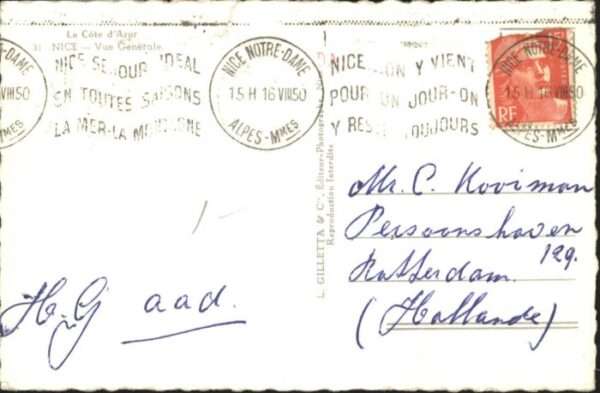 La Côte d'Azur
NICE — Vue Générale
NICE NOTRE-DAME
15 H 16 VIII 50
ALPES-MMES
NICE SEJOUR IDEAL
EN TOUTES SAISONS
LA MER-LA MONTAGNE
NICE NOTRE-DAME
15 H 16 VIII 50
ALPES-MMES
NICE - ON Y VIENT
POUR UN JOUR-ON
Y RESTE TOUJOURS
RF
L. GILLETTA & Cie, Éditeur-Photographe
Reproduction Interdite
Mr. C. Kooiman
Persoonshaven
129.
Rotterdam.
(Hollande)
H. G aad.
1-